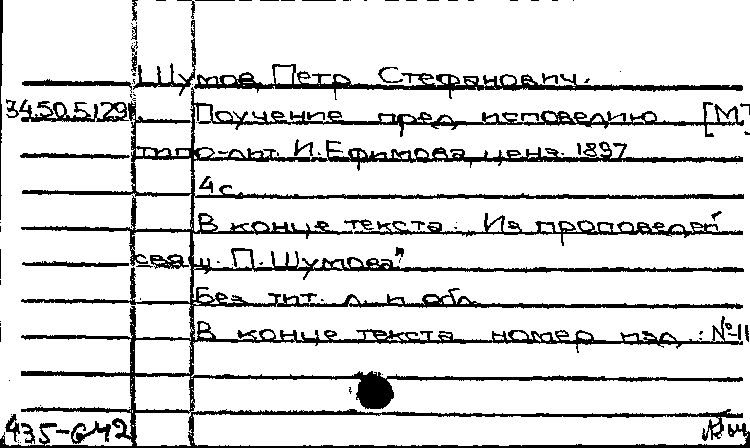 Шумов, Петр Стефанович.
34.50.5129. Поучение пред исповедию. [М.]
типо-лит. И. Ефимова, ценз. 1897
4 с.
В конце текста: Из проповедей
свящ. П. Шумова"
Без тит. л. и обл.
В конце текста номер изд.: №11
435-642